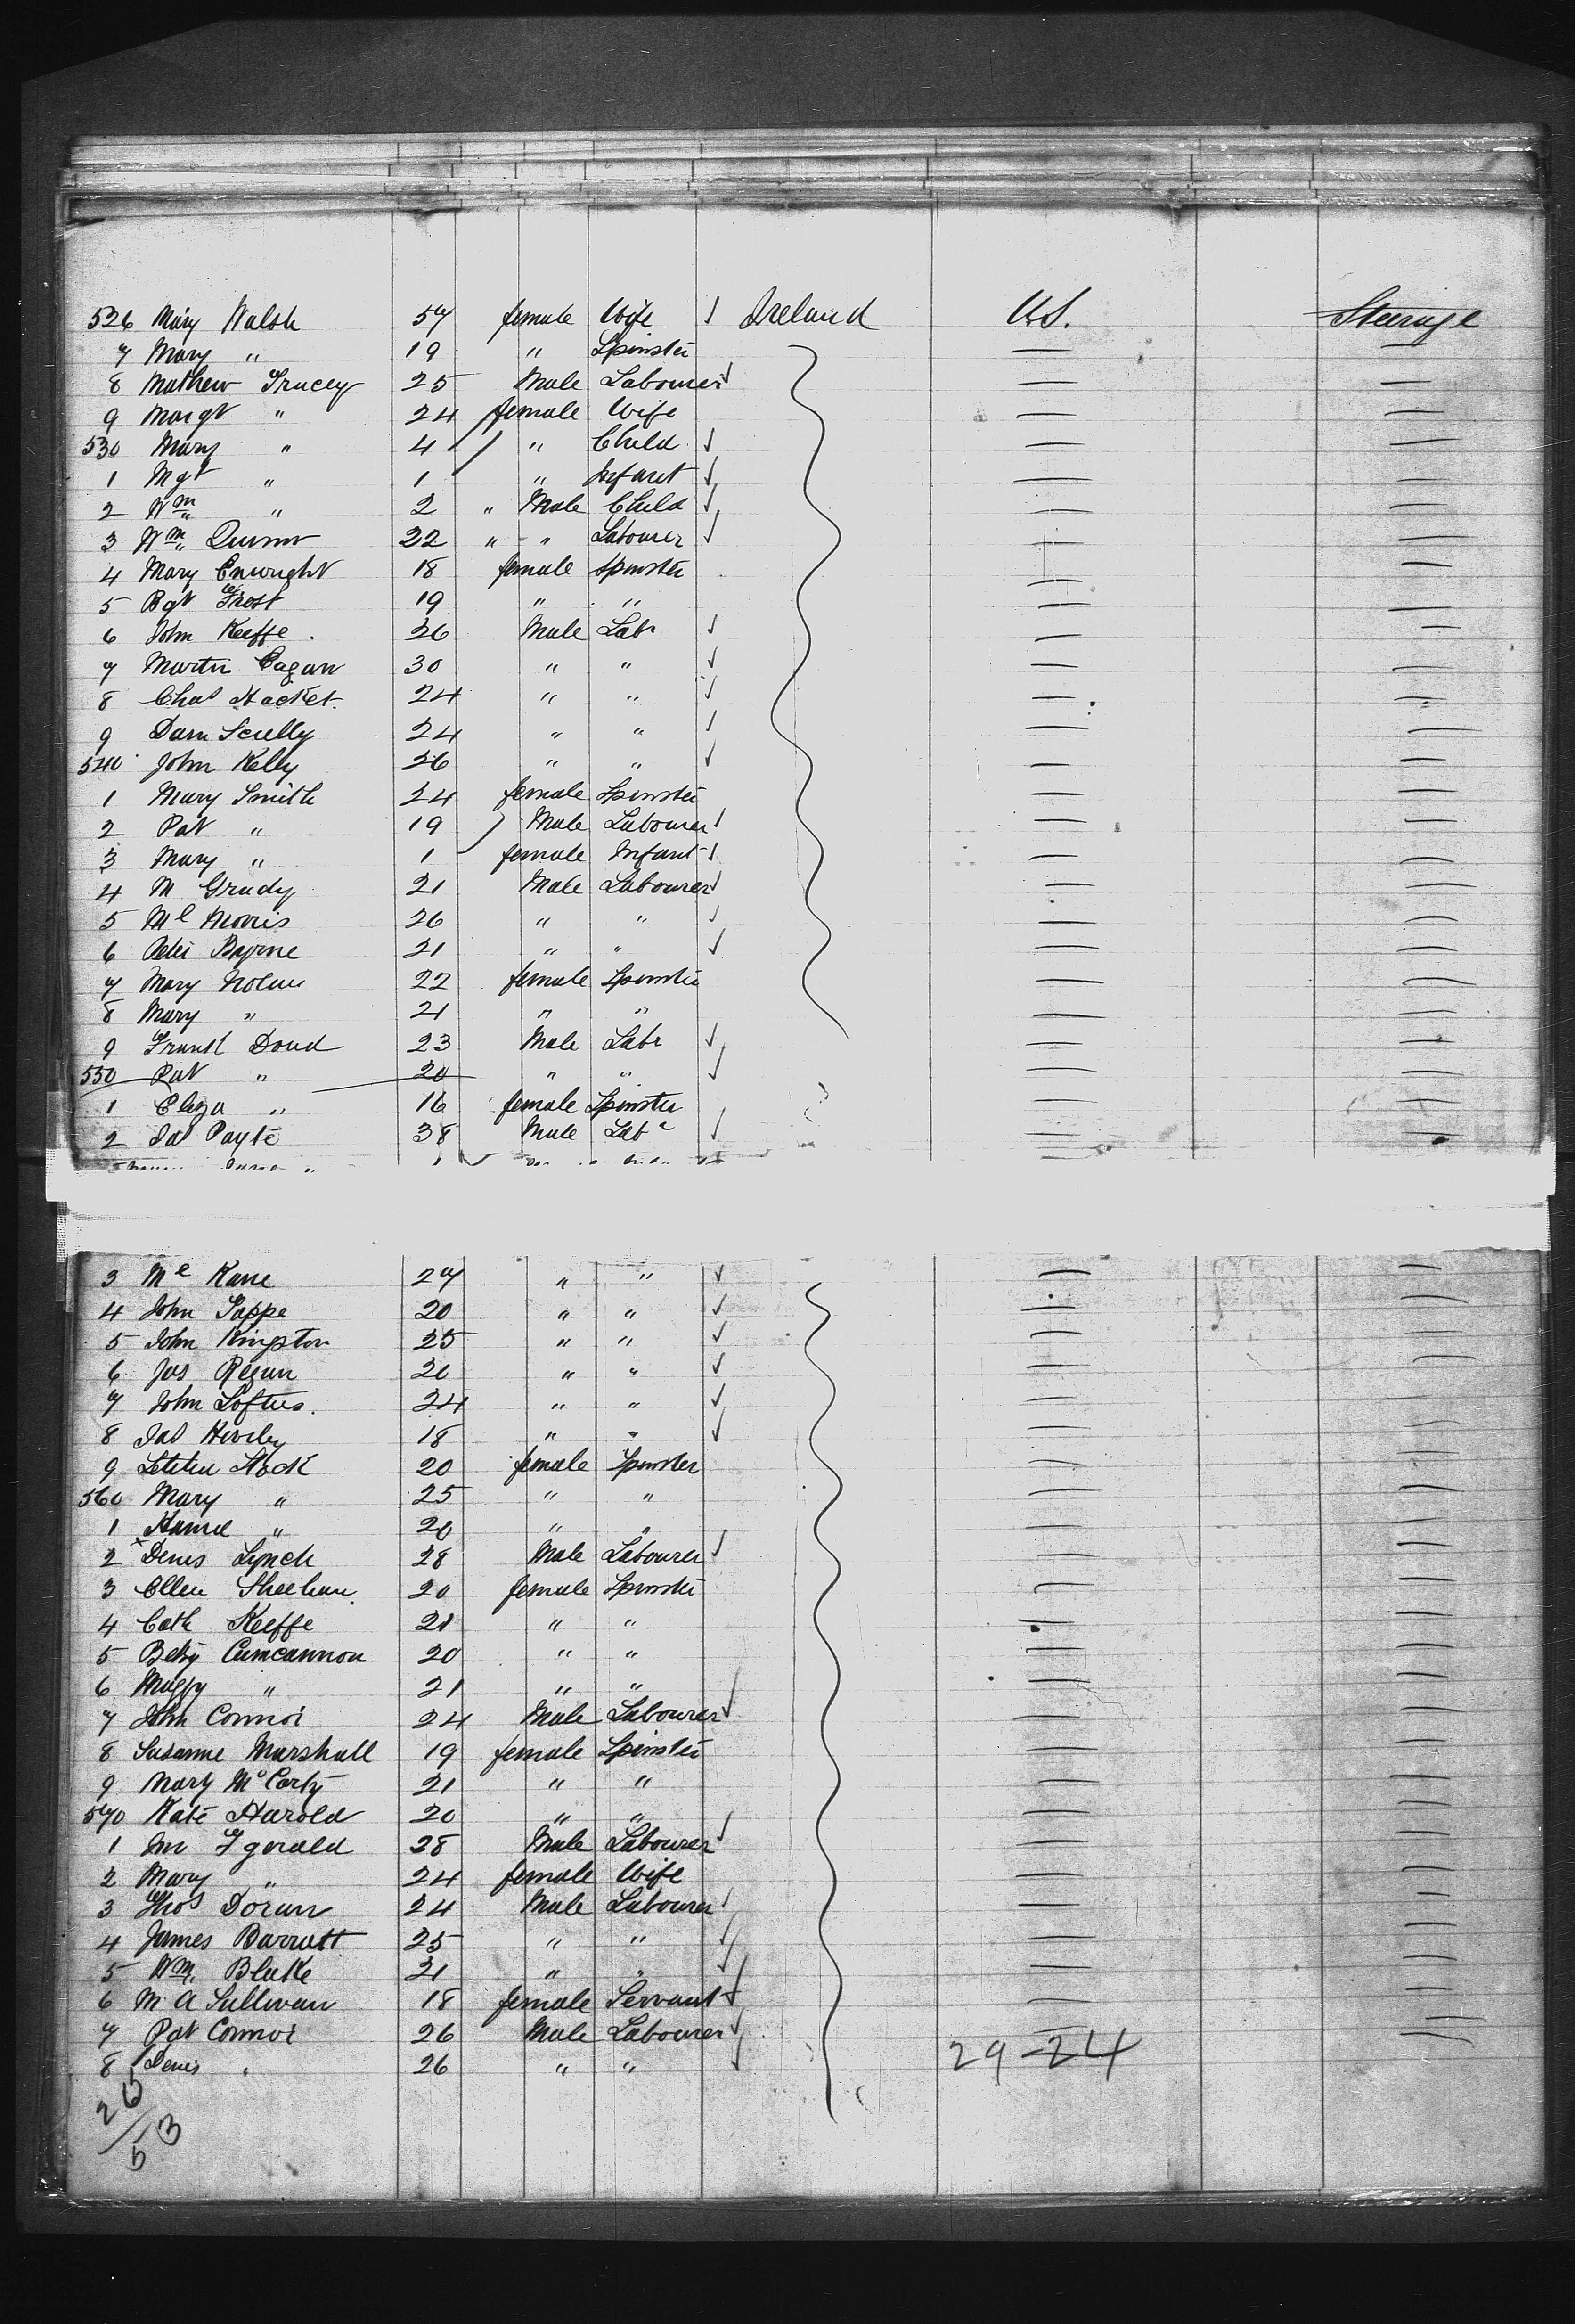 526 Mary Walsh 57 female Wife ✓ Ireland U.S. Steerage
7 Mary " 19 " Spinster — —
8 Mathew Tracey 25 Male Labourer ✓ — —
9 Margt " 24 female Wife — —
530 Mary " 4 " Child ✓ — —
1 Mgt " 1 " Infant ✓ — —
2 Wm " 2 " Male Child ✓ — —
3 Wm Quinn 22 " " Labourer ✓ — —
4 Mary Enwright 18 female Spinster — —
5 Bgt Frost 19 " " — —
6 John Keeffe 26 Male Labr ✓ — —
7 Martin Eagan 30 " " ✓ — —
8 Chas Hacket 24 " " ✓ — —
9 Dam Scully 24 " " ✓ — —
540 John Kelly 26 " " ✓ — —
1 Mary Smith 24 female Spinster — —
2 Pat " 19 Male Labourer ✓ — —
3 Mary " 1 female Infant ✓ — —
4 M Grady 21 Male Labourer ✓ — —
5 Ml Morris 26 " " ✓ — —
6 Peter Bayrne 21 " " ✓ — —
7 Mary Nolan 22 female Spinster — —
8 Mary " 21 " " — —
9 Frank Doud 23 Male Labr ✓ — —
550 Pat " 20 " " ✓ — —
1 Eliza " 16 female Spinster — —
2 Jas Payte 38 Male Labr ✓ — —
3 Ml Kane 27 " " ✓ — —
4 John Pappe 20 " " ✓ — —
5 John Kingston 25 " " ✓ — —
6 Jas Regan 20 " " ✓ — —
7 John Loftus. 24 " " ✓ — —
8 Jas 18 " " ✓ — —
9 Letitia Stock 20 female Spinster — —
560 Mary " 25 " " — —
1 " 20 " " — —
2 Denis Lynch 28 Male Labourer ✓ — —
3 Ellen Sheehan 20 female Spinster — —
4 Cath Keeffe 21 " " — —
5 Betsy Cumcannon 20 " " — —
6 Maggy " 21 " " — —
7 John Connor 24 Male Labourer ✓ — —
8 Susanne Marshall 19 female Spinster — —
9 Mary McCarty 21 " " — —
570 Kate Harold 20 " " — —
1 Fgerald 28 Male Labourer ✓ — —
2 Mary " 24 female Wife — —
3 Thos Doran 24 Male Labourer ✓ — —
4 James Barratt 25 " " ✓ — —
5 Wm Blake 21 " " ✓ — —
6 M A Sullivan 18 female Servant ✓ — —
7 Pat Connor 26 Male Labourer ✓ — —
8 Denis " 26 " " ✓ 29-24
26/53